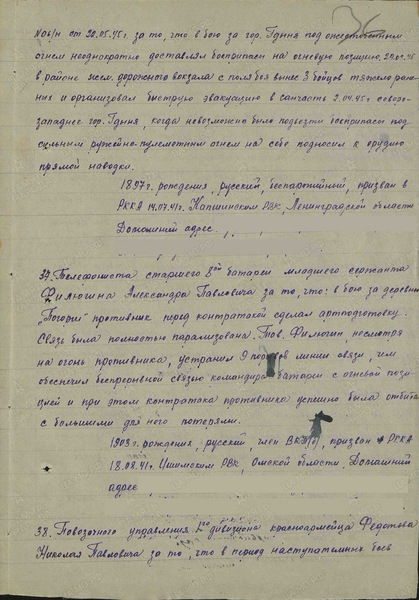 №06/н от 20.05.45г. за то, что в бою за гор. Гдыня под ожесточённым
огнем неоднократно доставлял боеприпасы на огневую позицию. 28.03.45
в районе жел. дорожного вокзала с поля боя вынес 3 бойцов тяжело ране-
ных и организовал быструю эвакуацию в санчасть 2.04.45г северо-
западнее гор. Гдыня, когда невозможно было подвезти боеприпасы под
сильным ружейно-пулеметным огнем на себе подносил к орудию
прямой наводки.
1897г. рождения, русский, беспартийный, призван в
РККА 14.07.41г. Капшинским РВК, Ленинградской области
Домашний адрес
37. Телефониста старшего 8ой батареи младшего сержанта
Филюгина Александра Павловича за то, что: в бою за деревню
"Погорш" противник перед контратакой сделал артподготовку.
Связь была полностью парализована. Тов. Филюгин, несмотря
на огонь противника, устранил 9 порывов линии связи, чем
обеспечил беспрерывной связью командира батареи с огневой пози-
цией и при этом контратака противника успешно была отбита
с большими для него потерями.
1903г. рождения, русский, член ВКП(б), призван в РККА
18.08.41г. Ишимским РВК, Омской области, Домашний
адрес
38. Повозочного управления 2го дивизиона красноармейца Федотова
Николая Павловича за то, что в период наступательных боев